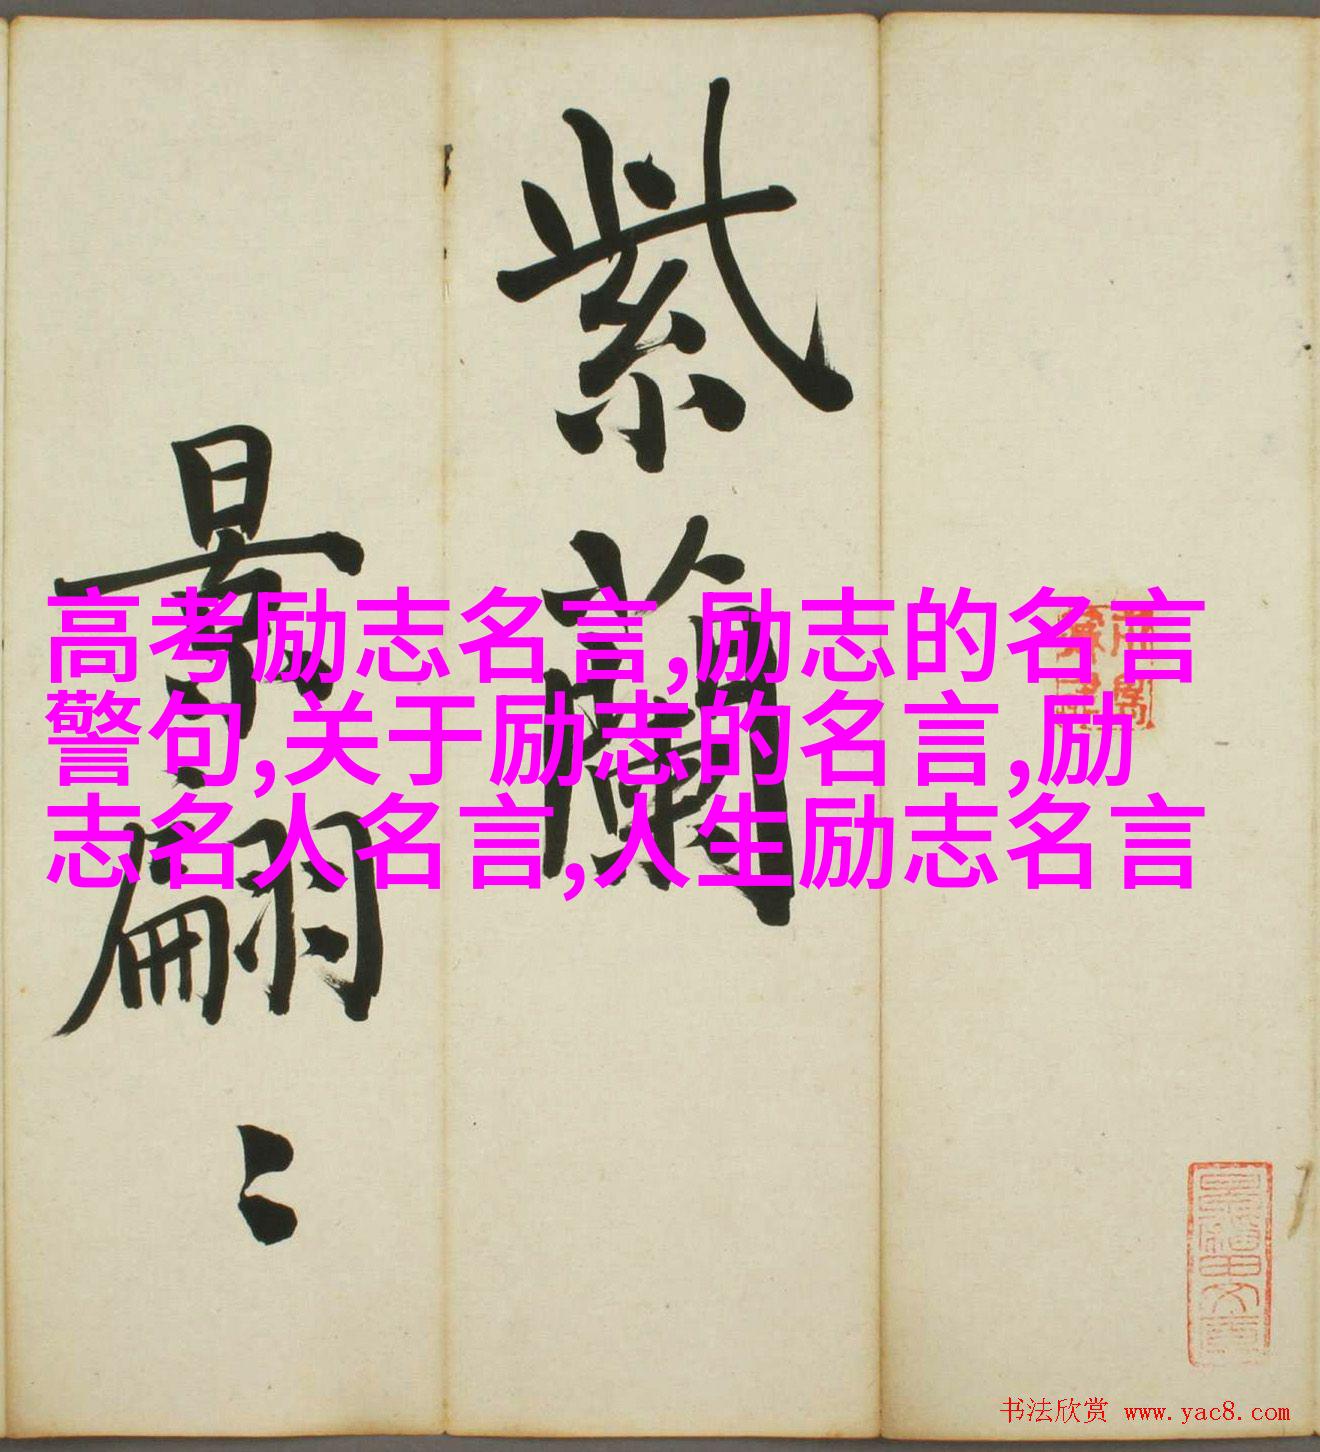 紫蘭
景翩〻
高考励志名言,励志的名言
警句,关于励志的名言,励
志名人名言,人生励志名言
书法欣赏 www.yac8.com